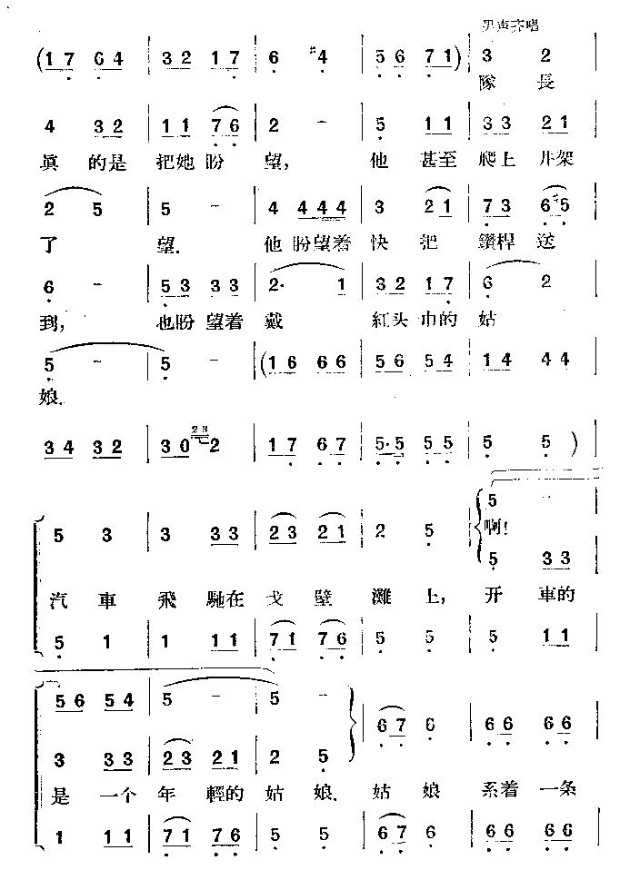 男声齐唱
(1 7 6 4 | 3 2 1 7 | 6 #4 | 5 6 7 1) | 3 2
隊長
4 3 2 | 1 1 7 6 | 2 - | 5 1 1 | 3 3 2 1
眞的是把她盼望，他甚至爬上井架
2 5 | 5 - | 4 4 4 4 4 | 3 2 1 | 7 3 6 #5
了望．他盼望着快把鑽桿送
6 - | 5 3 3 3 | 2· 1 | 3 2 1 7 | 6 2
到，也盼望着戴紅头巾的姑
5 - | 5 - | (1 6 6 6 | 5 6 5 4 | 1 4 4 4
娘．
3 4 3 2 | 3 0 2 3 2 | 1 7 6 7 | 5·5 5 5 | 5 5 )
5 -
5 3 | 3 3 3 | 2 3 2 1 | 2 5 | 啊！
5 3 3
汽車飛馳在戈壁灘上，开車的
5 1 | 1 1 1 | 7 1 7 6 | 5 5 | 5 1 1
5 6 5 4 | 5 - | 5 -
3 3 3 | 2 3 2 1 | 2 5 | 6 7 6 | 6 6 6 6
是一个年輕的姑娘．姑娘系着一条
1 1 1 | 7 1 7 6 | 5 5 | 6 7 6 | 6 6 6 6